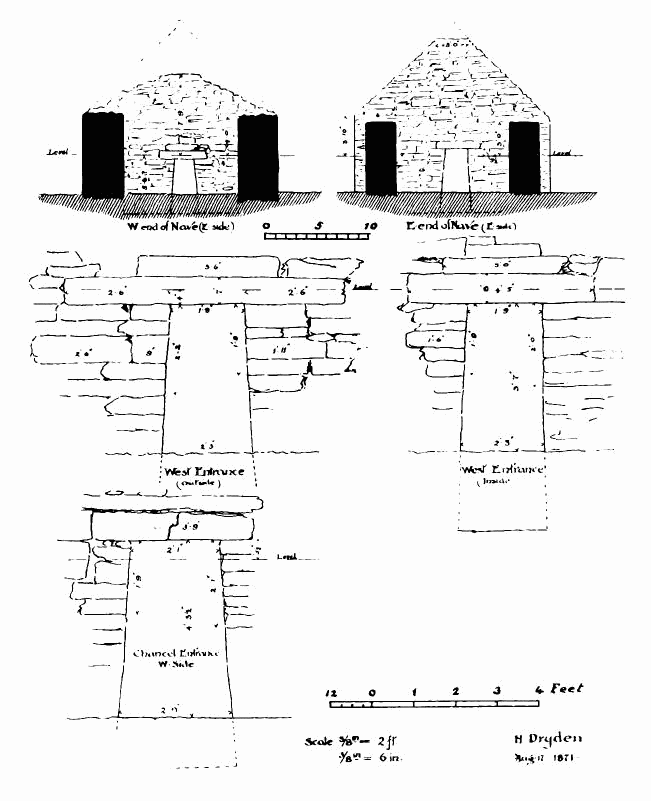 Level
Level
W end of Nave (E side)
0 5 10
E end of Nave (E side)
3·6"
2·6" 2·6"
Level
1·9"
1·9"
2·6" 9" 1·11"
2·3"
West Entrance
(Outside)
5·0"
4·5"
1·9"
1·6"
3·7"
2·3"
West Entrance
(Inside)
3·9"
2·1"
Level
1·9"
Chancel Entrance
W·Side
12 0 1 2 3 4 Feet
Scale 3/8 in = 2 ff
1/8 in = 6 in.
H Dryden
Aug 17 1871